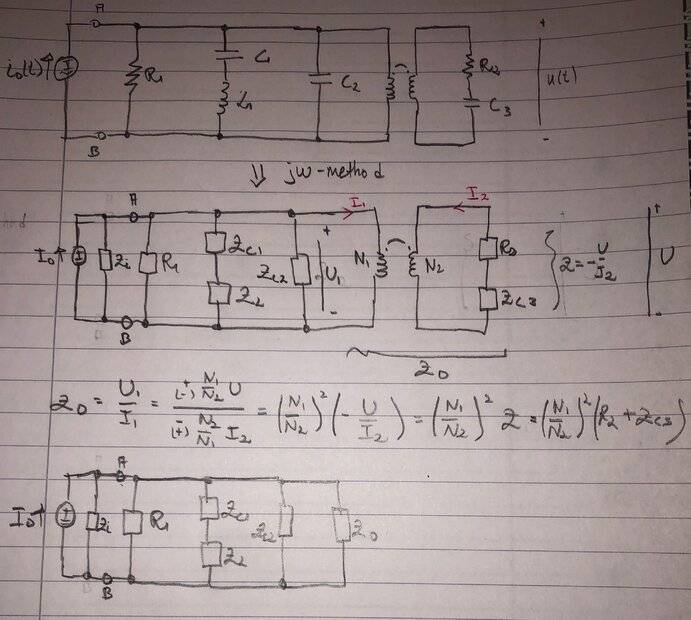 A
i₀(t) ↑ I R₁ C₁ L₁ C₂ R₂ C₃ + u(t) -
B
⇓ jω-method
A I₁ I₂
I₀ ↑ I Zi R₁ ZC1 ZL ZC2 + U₁ - N₁ N₂ R₂ ZC3 } Z = -U/I₂ + U -
B
Z₀
Z₀ = U₁/I₁ = ((±) N₁/N₂ U)/((∓) N₂/N₁ I₂) = (N₁/N₂)² (-U/I₂) = (N₁/N₂)² Z = (N₁/N₂)² (R₂ + ZC3)
A
I₀ ↑ I Zi R₁ ZC1 ZL ZC2 Z₀
B